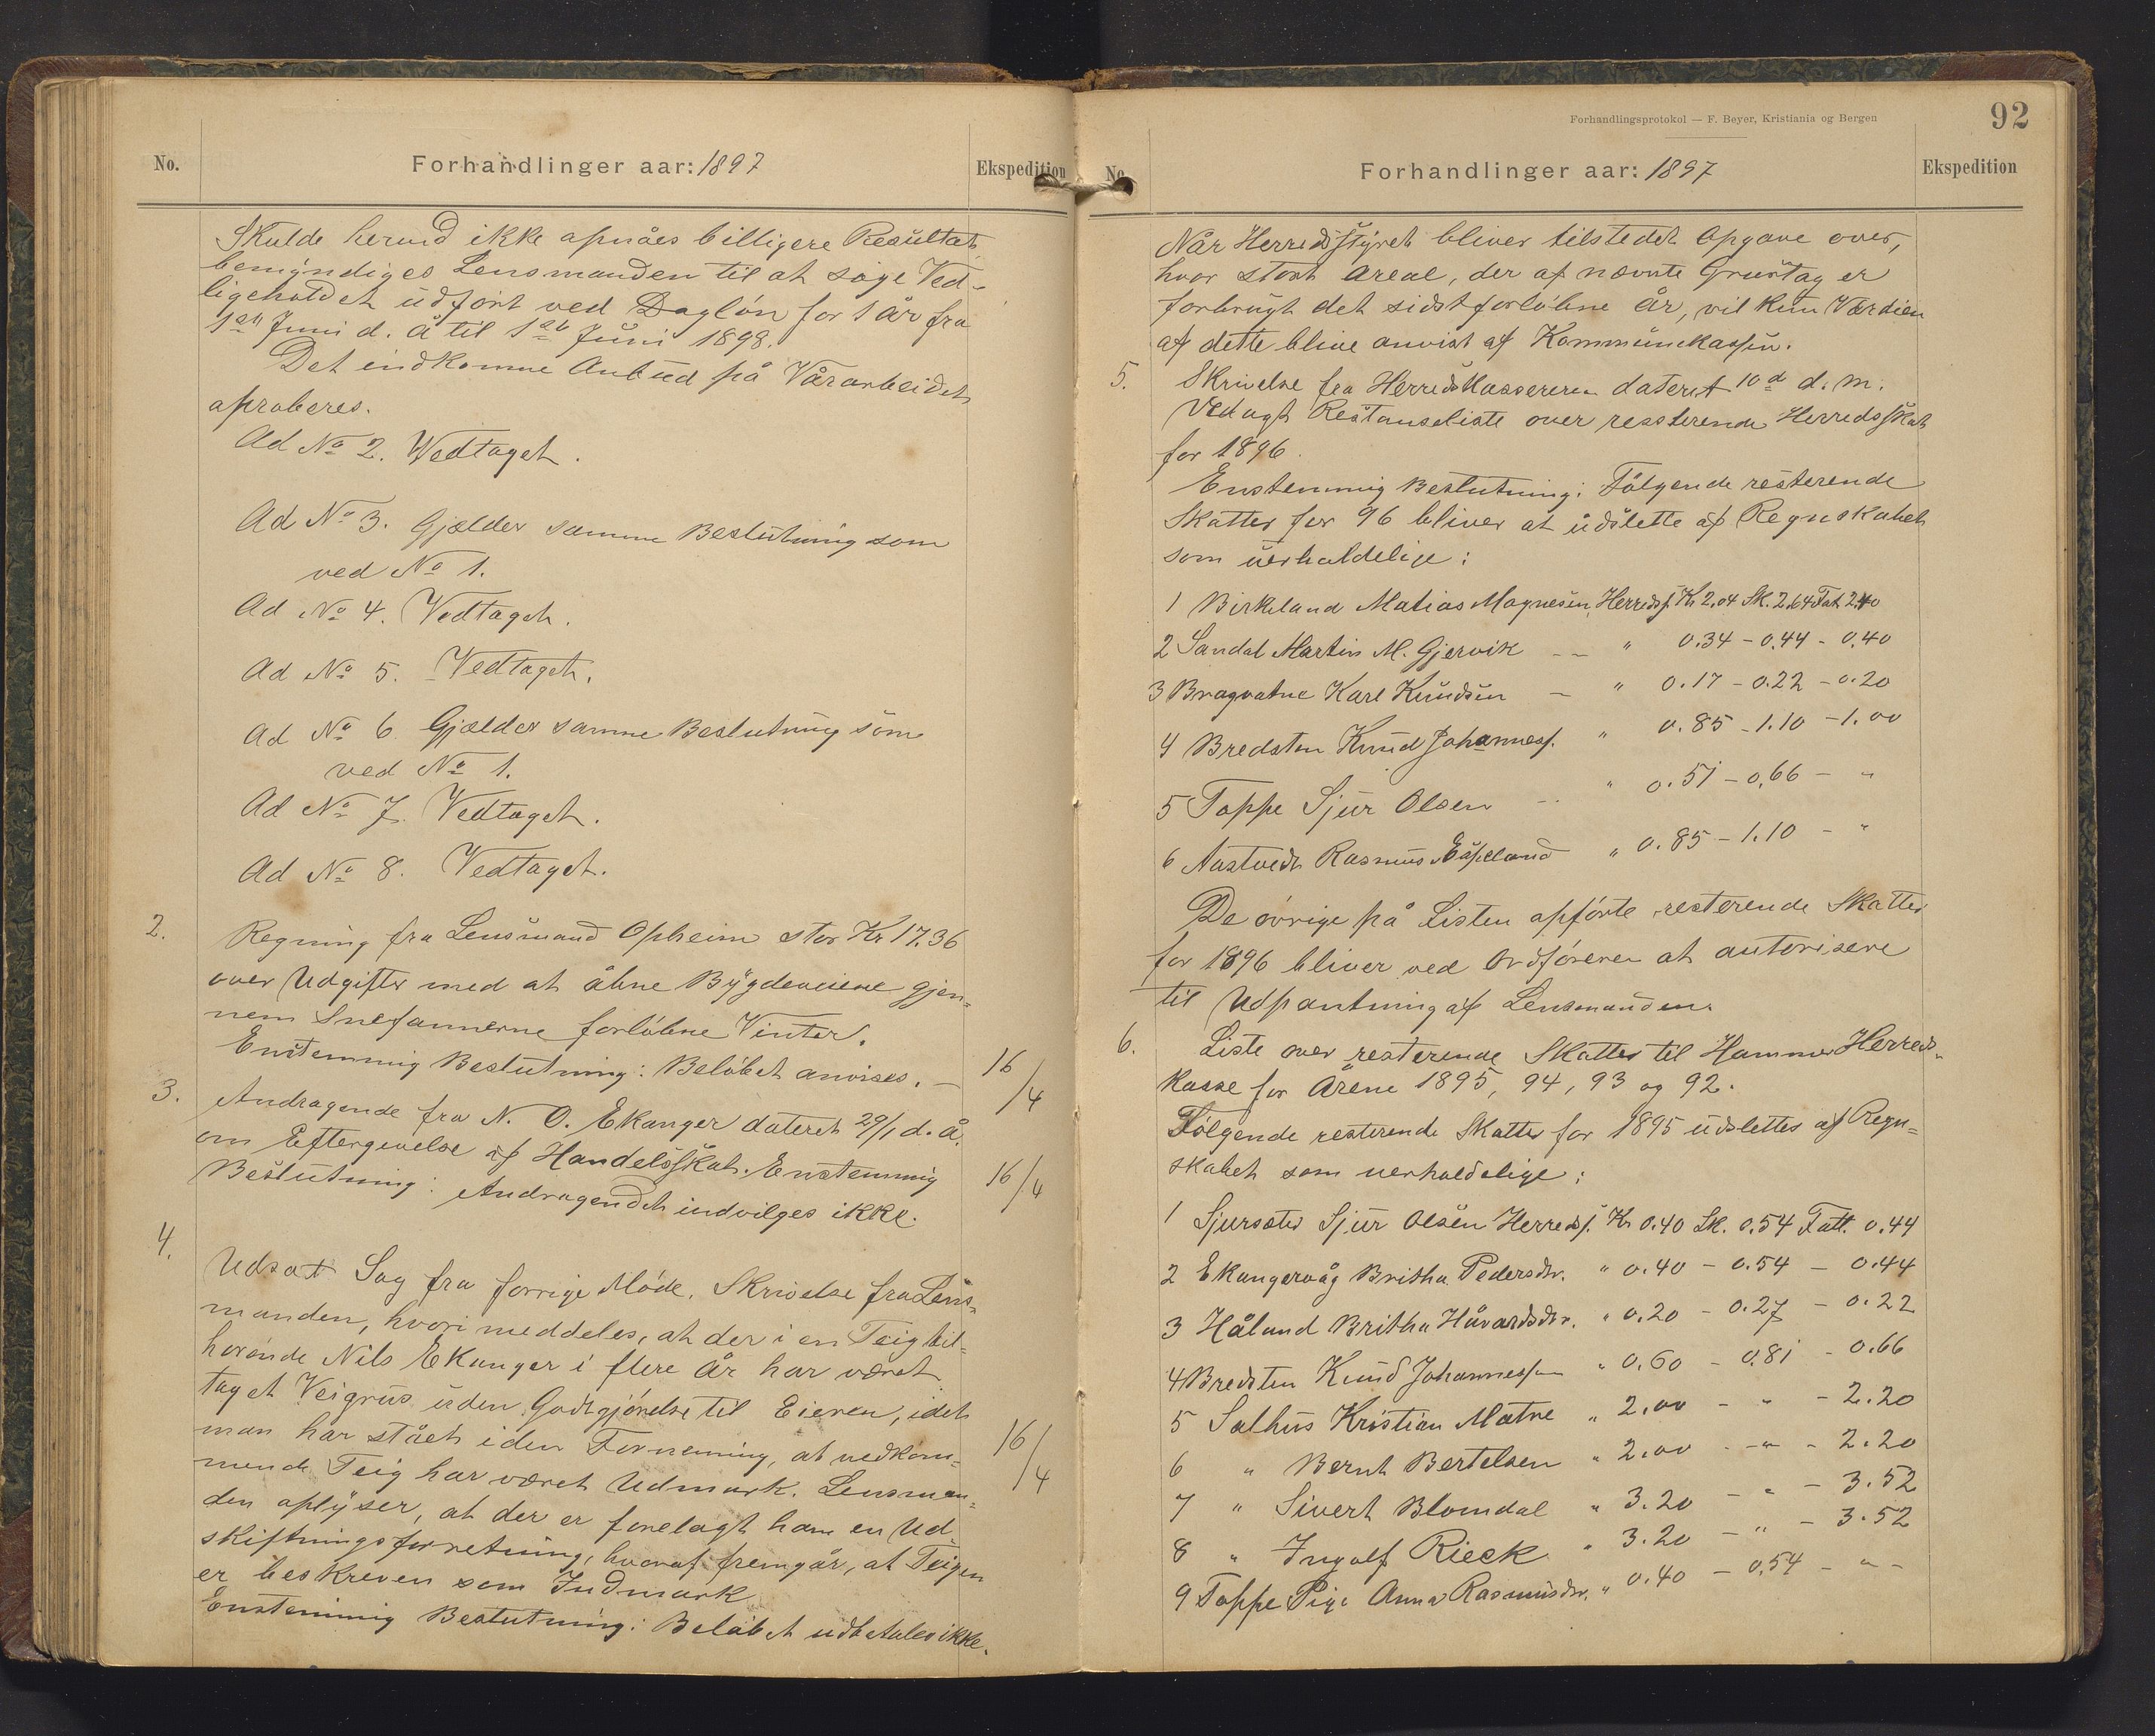 No.
Forhandlinger aar: 1897
Ekspedition
Skulde herved ikke opnåes billigere Resultat
bemyndiges Lensmanden til at søge Ved-
ligeholdet udført ved Dagløn for 1 År fra
1st Juni d. å til 1st Juni 1898.
Det indkomne Anbud på Vårarbeidet
aproberes.
Ad No 2. Wedtaget.
Ad No 3. Gjælder samme Beslutning som
ved No 1.
Ad No 4. Vedtaget.
Ad No 5. Vedtaget.
Ad No 6 Gjælder samme Beslutning som
ved No 1.
Ad No 7. Vedtaget.
Ad No 8. Vedtaget.
2. Regning fra Lensmand Opheim stor Kr 17.36
over Udgifter med at åbne Bygdeveiene gjen=
nem Snefannerne forløbne Vinter.
Enstemmig Beslutning: Beløbet anvises. — 16/4
3. Andragende fra N. O. Ekanger dateret 29/1 d. å.
om Eftergivelse af Handelsskat. Enstemmig
Beslutning: Andragendet indvilges ikke. 16/4
4. Udsat Sag fra forrige Møde. Skrivelse fra Lens=
manden, hvori meddeles, at der i en Teig til=
hørende Nils Ekanger i flere År har været
taget Veigrus uden Godtgjørelse til Eieren, idet
man har stået i den Formening, at vedkom= 16/4
mende Teig har været Udmark. Lensman=
den oplyser, at der er forelagt ham en Ud=
skiftningsforretning, hvoraf fremgår, at Teigen
er beskreven som Indmark
Enstemmig Beslutning: Beløbet udbetales ikke.
Forhandlingsprotokol — F. Beyer, Kristiania og Bergen
92
No.
Forhandlinger aar: 1897
Ekspedition
Når Herredsstyret bliver tilstedet Opgave over,
hvor stort Areal, der af nævnte Grustag er
forbrugt det sidst forløbne År, vil kun Værdien
af dette blive anvist af Kommunekassen.
5. Skrivelse fra Herredskassereren dateret 10d d. M.
Vedlagt Restanseliste over ressterende Herredsskat
for 1896.
Enstemmig Beslutning: Følgende resterende
Skatter for 96 bliver at udslette af Regnskabet
som uerholdelige:
1 Birkeland Matias Magnesen, Herredsf. Kr 2.04 Sk. 2.64 Fat. 2.40
2 Sandal Martin M. Gjervik -- " 0.34 - 0.44 - 0.40
3 Bragvatne Karl Knudsen — " 0.17 - 0.22 - 0.20
4 Bredsten Knud Johannesf. " 0.85 - 1.10 - 1.00
5 Toppe Sjur Olsen -- " 0.51 - 0.66 - "
6 Aastvedt Rasmus Espeland " 0.85 - 1.10 - "
De øvrige på Listen opførte resterende Skatter
for 1896 bliver ved Ordføreren at autorisere
til Udpantning af Lensmanden.
6. Liste over resterende Skatter til Hammer Herreds=
kasse for Årene 1895, 94, 93 og 92.
Følgende resterende Skatter for 1895 udslettes af Regn=
skabet som uerholdelige:
1 Sjursæter Sjur Olsen Herredsf. Kr 0.40 Sk. 0.54 Fatt. 0.44
2 Ekangervåg Britha Pedersdtr. " 0.40 - 0.54 - 0.44
3 Håland Britha Håvardsdtr. " 0.20 - 0.27 - 0.22
4 Bredsten Knud Johannessen " 0.60 - 0.81 - 0.66
5 Salhus Kristian Matre " 2.00 - " - 2.20
6 " Bernt Bertelsen " 2.00 - " - 2.20
7 " Sivert Blomdal " 3.20 - " - 3.52
8 " Ingolf Rieck " 3.20 - " - 3.52
9 Toppe Pige Anna Rasmusdtr. " 0.40 - 0.54 - " -